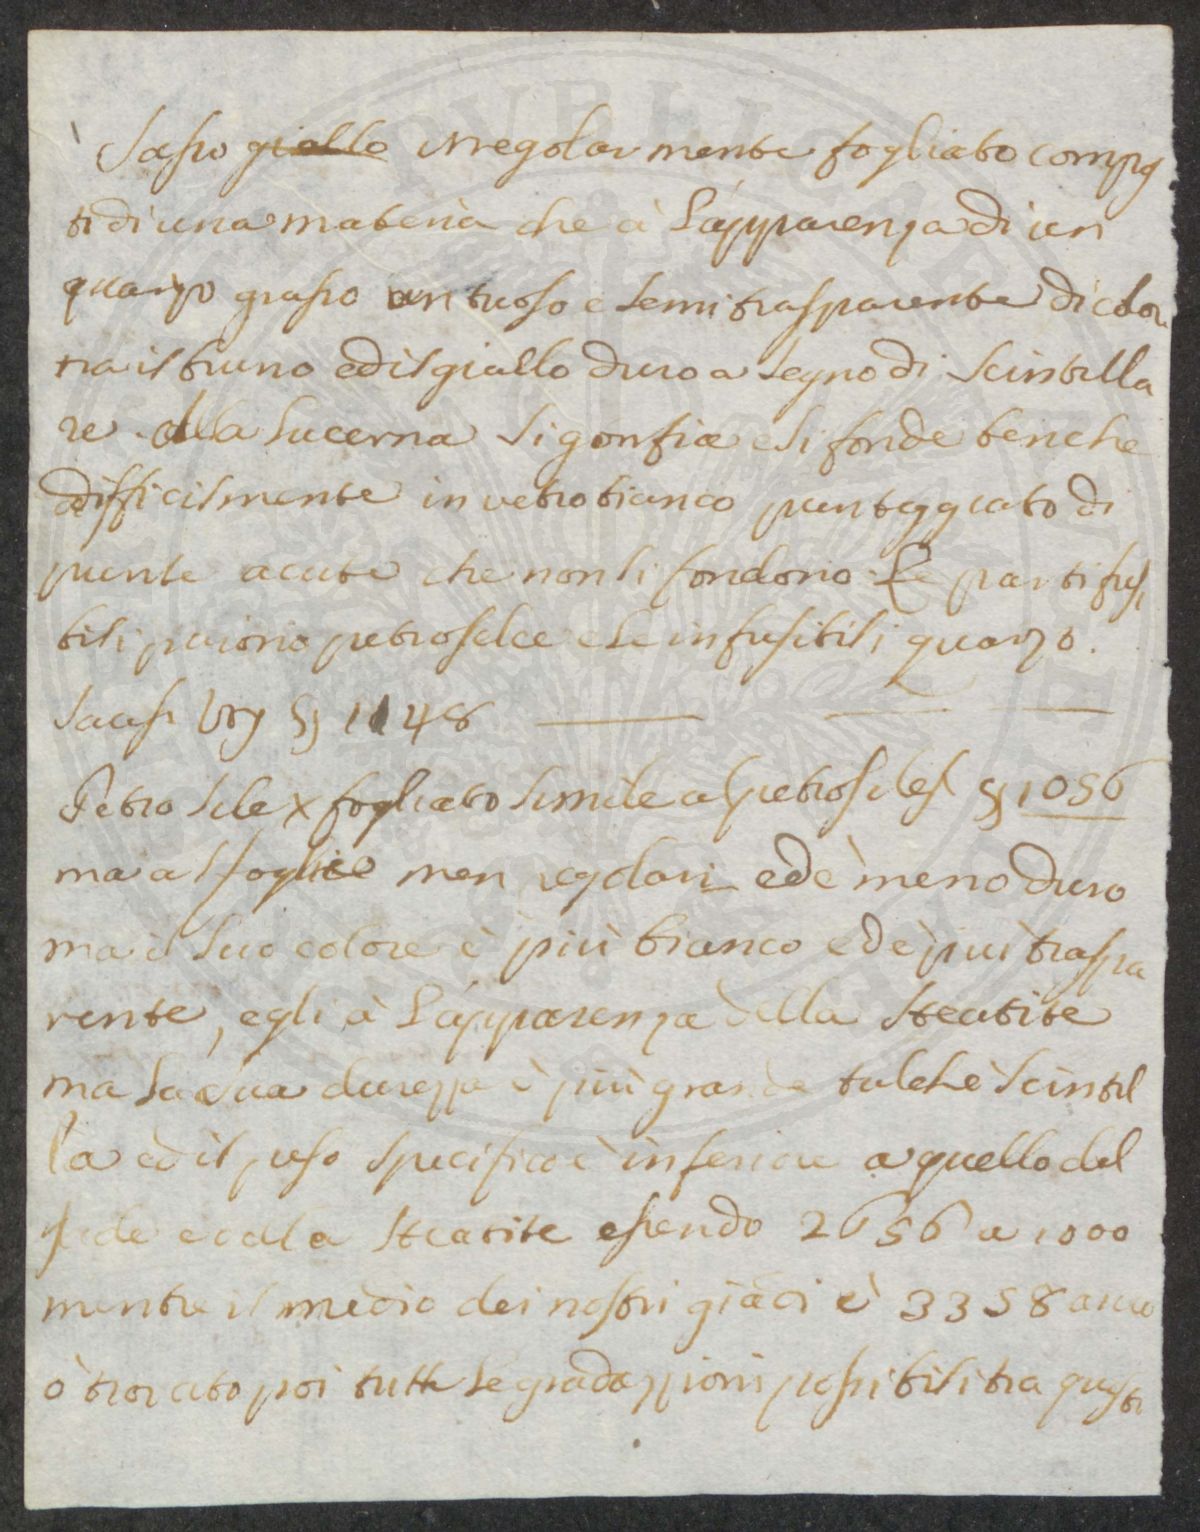 Sasso giallo irregolarmente fogliato compos
ti di una materia che à l'apparenza di un
quarzo grasso untuoso e semitrasparente di color
tra il bruno ed il giallo duro a segno di scintilla
re. Alla lucerna si gonfia e si fonde benche
difficilmente in vetro bianco punteggiato di
punte acute che non si fondono. Le parti fusi
bili paiono petroselce e le infusibili quarzo.
Sauss Voy § 1148
Petro silex fogliato simile al petrosilex § 1056
ma a foglie men regolari ed è meno duro
ma il suo colore è più bianco ed è più traspa
rente, egli à l'apparenza della steatite
ma la sua durezza è più grande talchè scintil
la ed il peso specifico è inferiore a quello del
jade e della steatite essendo 2656 a 1000
mentre il medio dei nostri giadi è 3358
ò trovato poi tutte le gradazzioni possibili tra questi